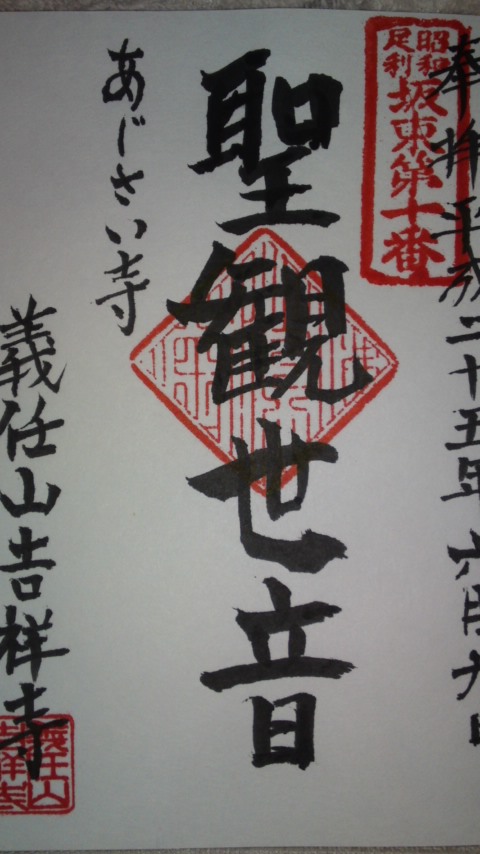 奉拝平成二十五年六月九日
昭和
足利
坂東第十番
聖観世音
あじさい寺
義任山吉祥寺
義任山
吉祥寺